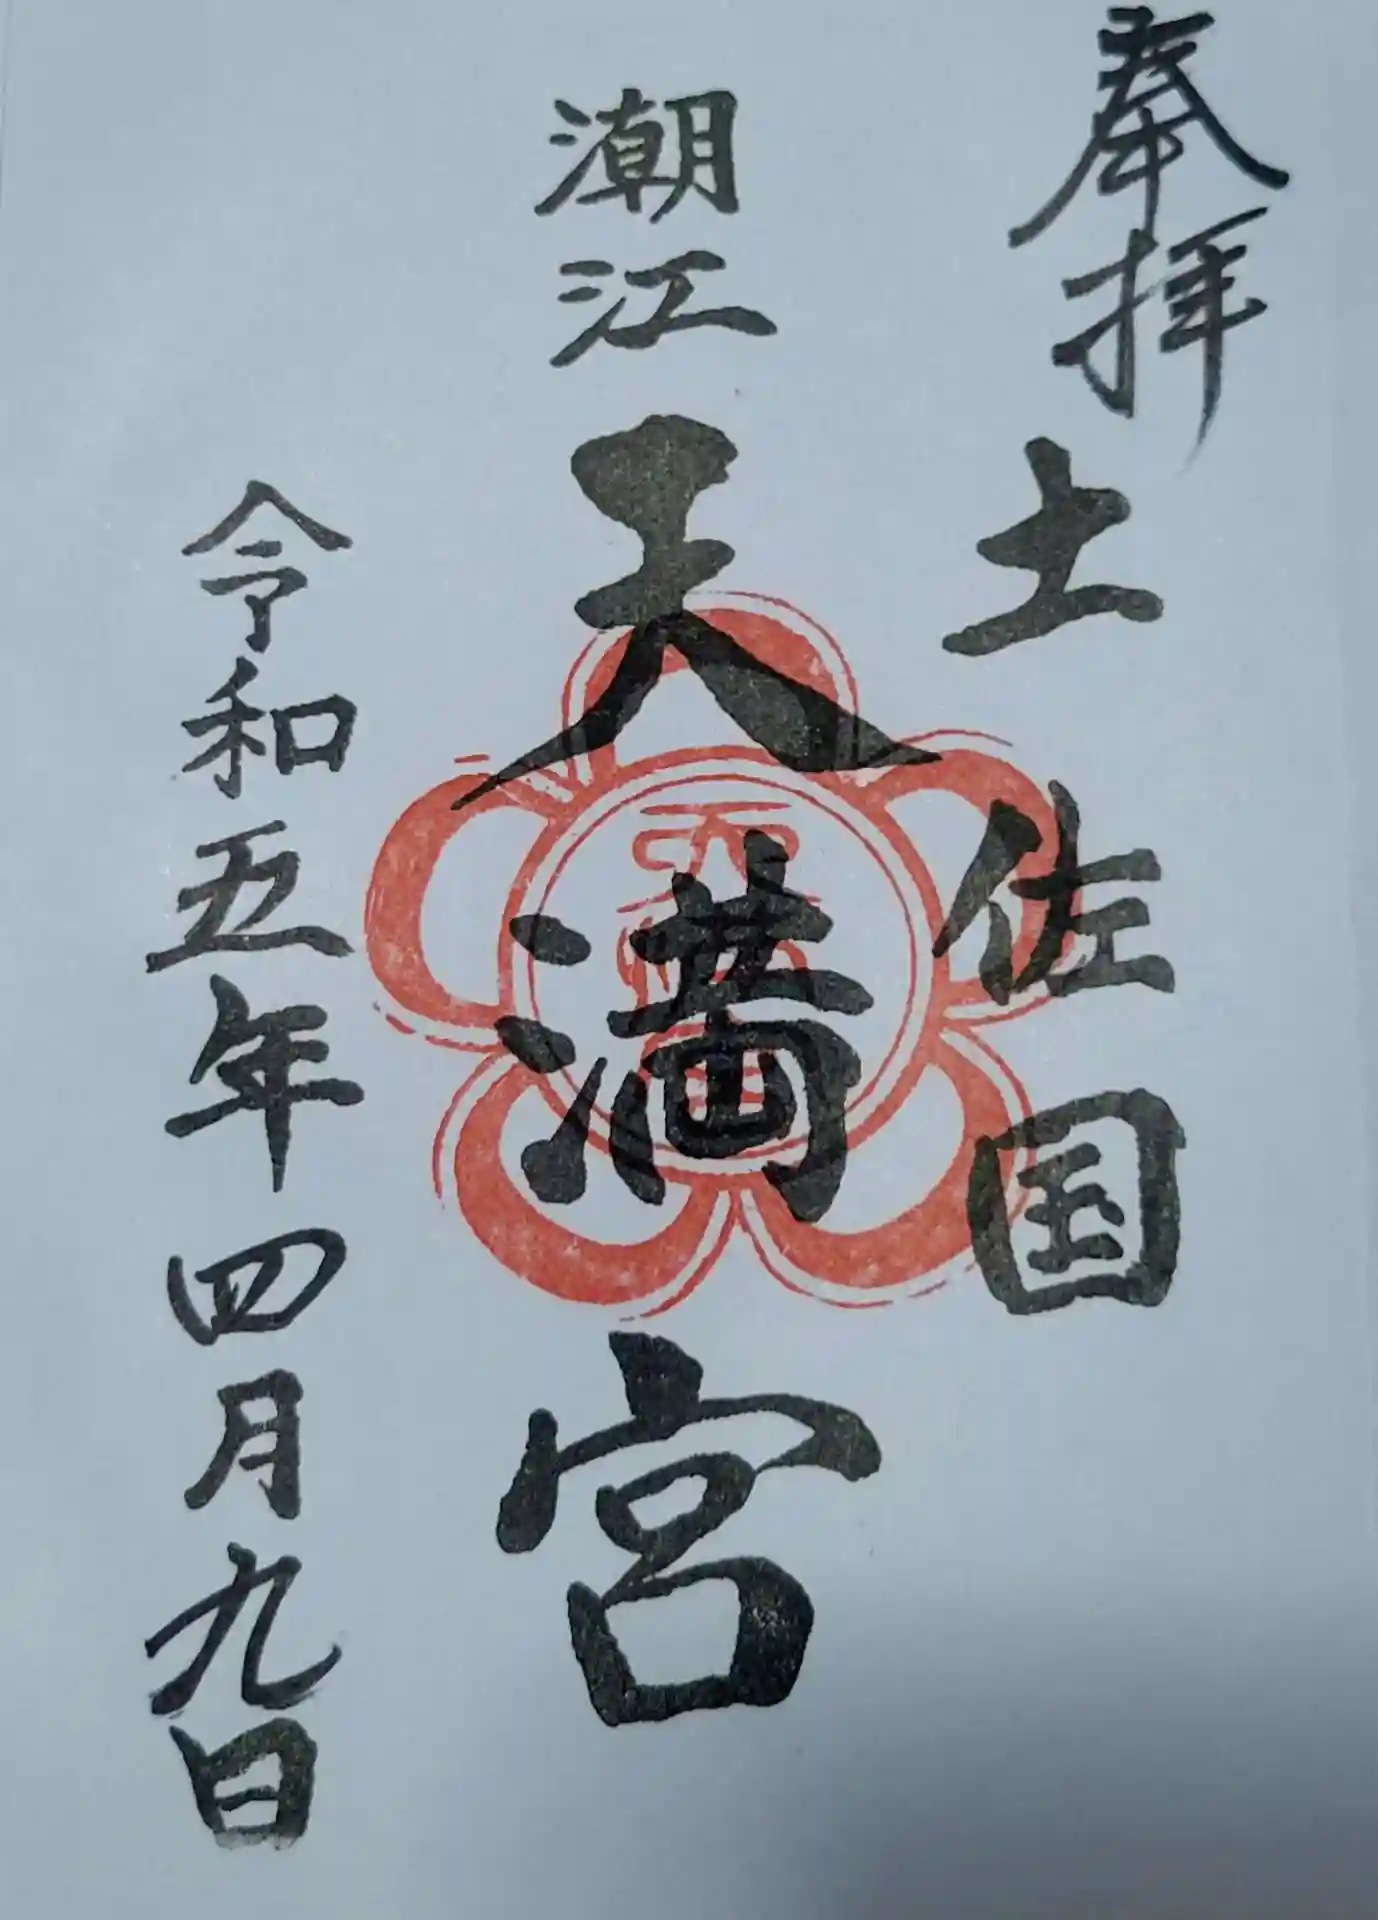 奉拝
土佐国
潮江天満宮
令和五年四月九日